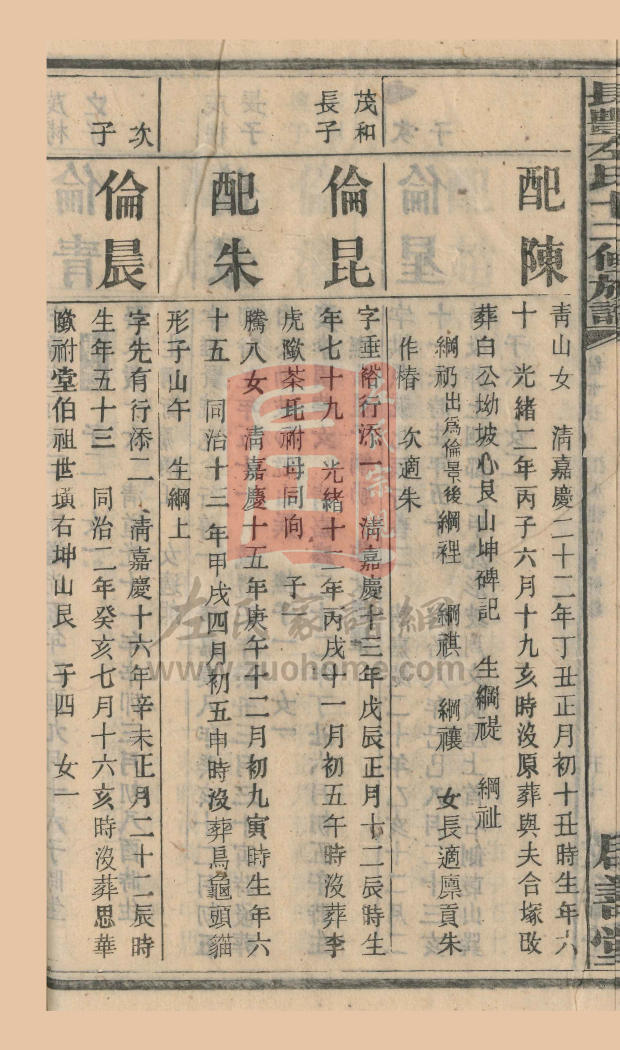 長豐左氏十二修族譜
配陳
青山女 清嘉慶二十二年丁丑正月初十丑時生年六
十 光緒二年丙子六月十九亥時沒原葬與夫合塚改
葬白公坳坡心艮山坤碑記 生綱禔 綱祉
綱礽出爲倫景後綱裡 綱祺 綱禳 女長適廪貢朱
作椿 次適朱
茂和
長子
倫昆
字垂裕行添一 清嘉慶十三年戊辰正月十二辰時生
年七十九 光緒十二年丙戌十一月初五午時沒葬李
虎墩茶坵祔母同向 子
配朱
騰八女 清嘉慶十五年庚午十二月初九寅時生年六
十五 同治十三年甲戌四月初五申時沒葬烏龜頭貓
形子山午 生綱上
次
子
倫晨
字先有行添二 清嘉慶十六年辛未正月二十二辰時
生年五十三 同治二年癸亥七月十六亥時沒葬思華
墩祔堂伯祖世璜右坤山艮 子四 女一
左氏家譜網
www.zuohome.com